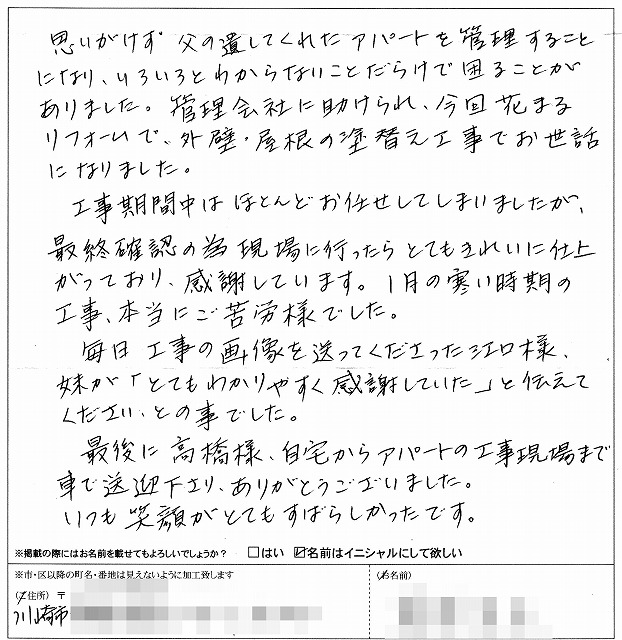 思いがけず 父の遺してくれたアパートを管理すること
になり、いろいろとわからないことだらけで困ることが
ありました。管理会社に助けられ、今回花まる
リフォームで、外壁・屋根の塗替え工事でお世話
になりました。
工事期間中はほとんどお任せしてしまいましたが、
最終確認の当現場に行ったらとてもきれいに仕上
がっており、感謝しています。1月の寒い時期の
工事、本当にご苦労様でした。
毎日工事の画像を送ってくださった江口様、
妹が「とてもわかりやすく感謝していた」と伝えて
ください、との事でした。
最後に高橋様、自宅からアパートの工事現場まで
車で送迎下さり、ありがとうございました。
いつも笑顔がとてもすばらしかったです。
※掲載の際にはお名前を載せてもよろしいでしょうか？ □はい ☑名前はイニシャルにして欲しい
※市・区以降の町名・番地は見えないように加工致します
(ご住所) 〒
川崎市
(お名前)